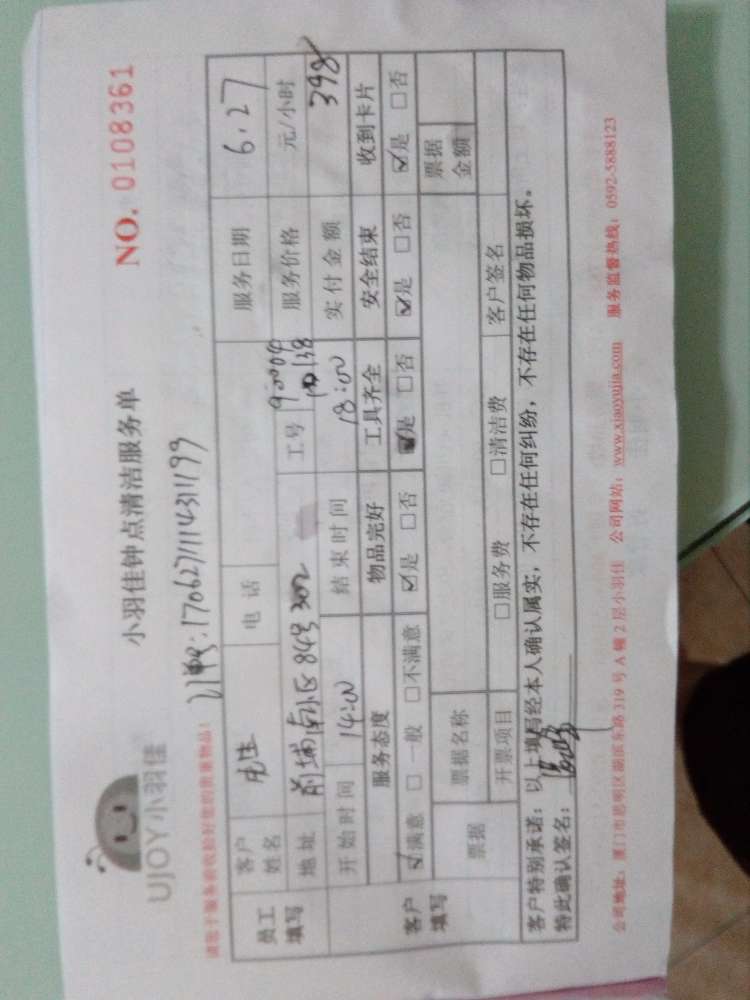 UJOY小羽佳
小羽佳钟点清洁服务单
NO. 0108361
请您于服务前收拾好您的贵重物品!
170627111431199
员工填写 客户姓名 电话 服务日期 6.27
地址 前埔南小区84号302 工号 90004 服务价格 元/小时
开始时间 14:00 结束时间 18:00 实付金额 398
客户填写 服务态度 物品完好 工具齐全 安全结束 收到卡片
☑满意 □一般 □不满意 ☑是 □否 ☑是 □否 ☑是 □否 ☑是 □否
票据 票据名称 票据金额
开票项目 □服务费 □清洁费 客户签名
客户特别承诺:以上填写经本人确认属实,不存在任何纠纷,不存在任何物品损坏。
特此确认签名:
公司地址:厦门市思明区湖滨东路319号A幢2层小羽佳 公司网站:www.xiaoyujia.com 服务监督热线:0592-5888123